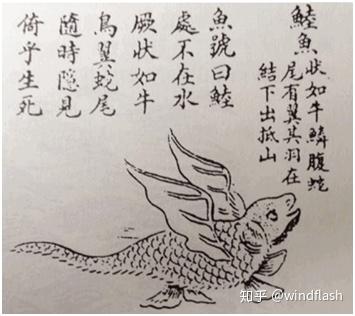 鯥魚狀如牛鱗腹蛇
尾有翼其羽在
結下出抵山
魚號曰鯥
處不在水
厥狀如牛
鳥翼蛇尾
隨時隐見
倚乎生死
知乎 @windflash